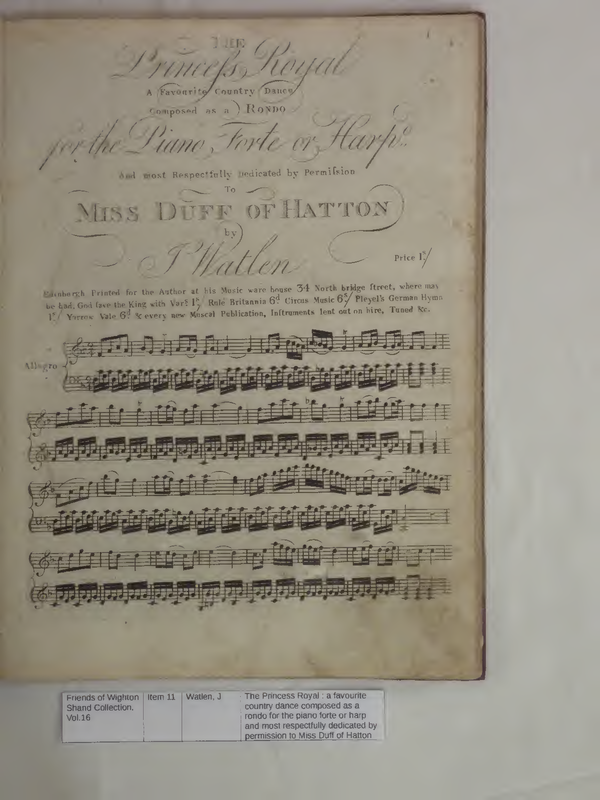 THE
Princeſs Royal
A Favourite Country Dance
Composed as a RONDO
for the Piano Forte or Harpd.
And most Respectfully Dedicated by Permiſsion
To
MISS DUFF OF HATTON
by
J Watlen
Price 1s/
Edinburgh Printed for the Author at his Music ware house 34 North bridge ſtreet, where may
be had, God ſave the King with Vars. 1s/ Rule Britannia 6d Circus Music 6d/ Pleyel's German Hymn
1s/ Yarrow Vale 6d & every new Muscal Publication, Inſtruments lent out on hire, Tuned &c.
Allegro
Friends of Wighton
Shand Collection.
Vol.16
Item 11
Watlen, J
The Princess Royal : a favourite
country dance composed as a
rondo for the piano forte or harp
and most respectfully dedicated by
permission to Miss Duff of Hatton